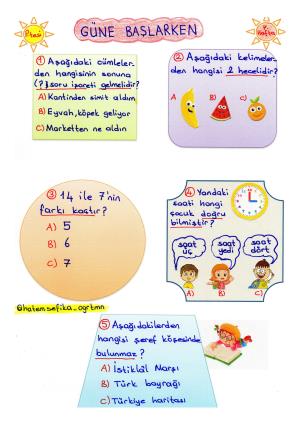 P.tesi
GÜNE BAŞLARKEN
7. hafta
① Aşağıdaki cümleler-
den hangisinin sonuna
(?) soru işareti gelmelidir?
A) Kantinden simit aldım
B) Eyvah, köpek geliyor
C) Marketten ne aldın
② Aşağıdaki kelimeler-
den hangisi 2 hecelidir?
A) B) C)
③ 14 ile 7'nin
farkı kaçtır?
A) 5
B) 6
C) 7
④ Yandaki
saati hangi
çocuk doğru
bilmiştir?
saat üç
saat yedi
saat dört
A) B) C)
@hatemsefika_ogrtmn
⑤ Aşağıdakilerden
hangisi şeref köşesinde
bulunmaz?
A) İstiklâl Marşı
B) Türk bayrağı
C) Türkiye haritası